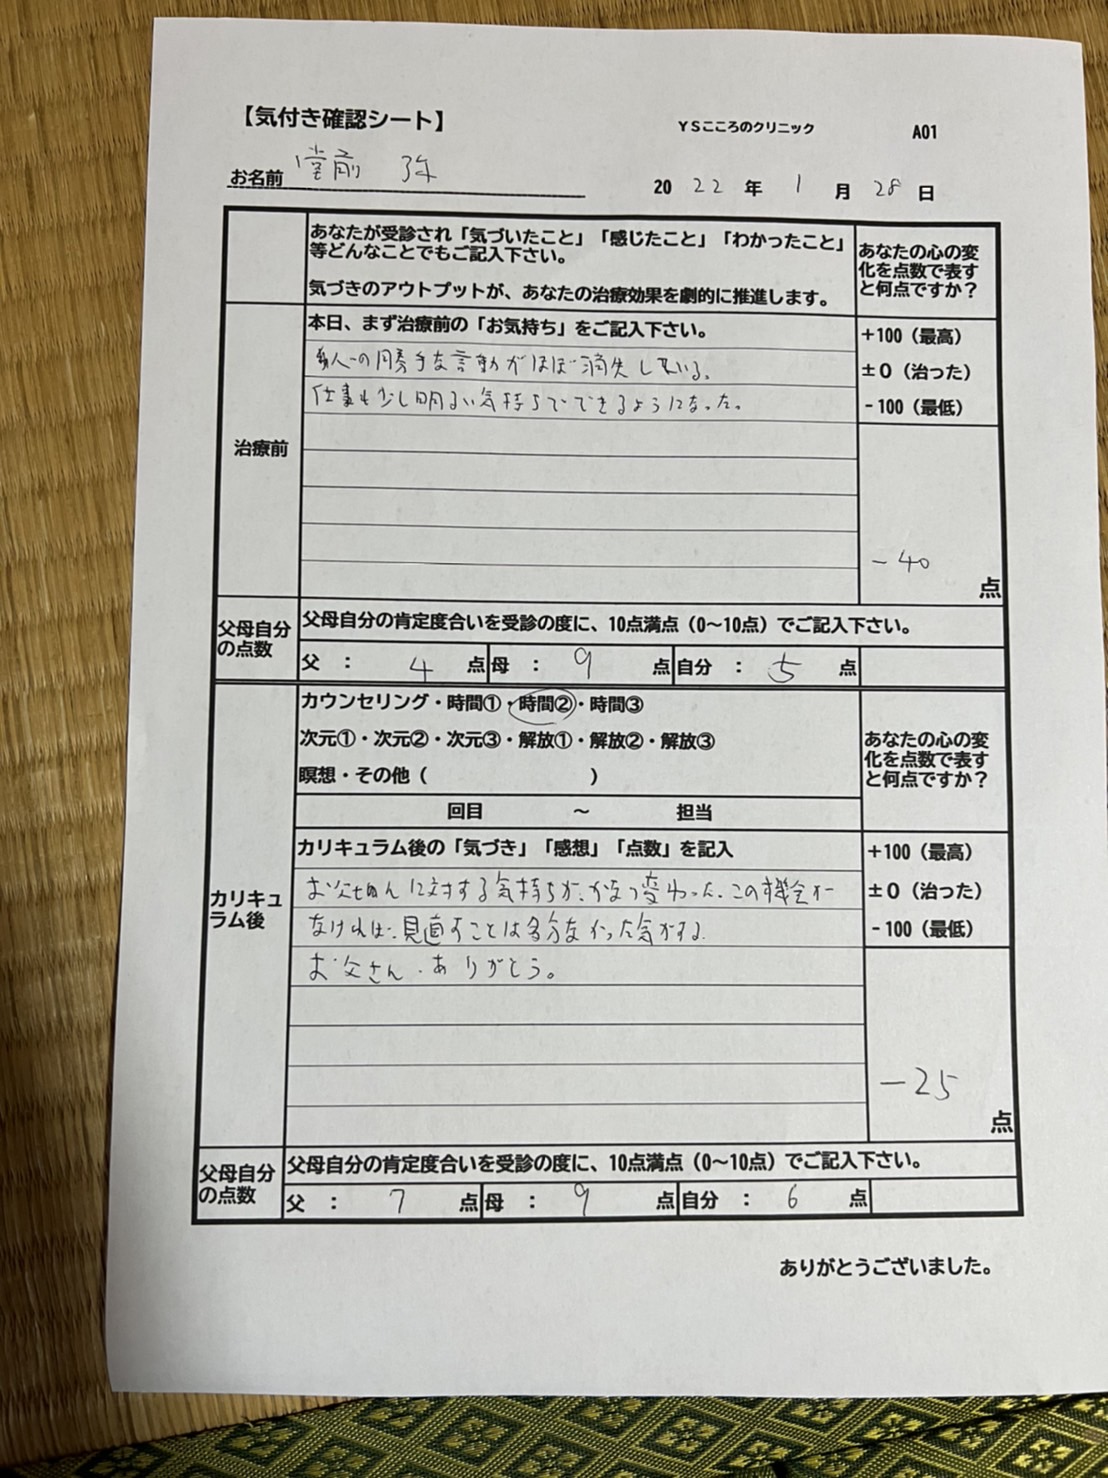 【気付き確認シート】
YSこころのクリニック
A01
お名前 堂前 弥
2022年1月28日
あなたが受診され「気づいたこと」「感じたこと」「わかったこと」
等どんなことでもご記入下さい。
気づきのアウトプットが、あなたの治療効果を劇的に推進します。
あなたの心の変
化を点数で表す
と何点ですか？
治療前
本日、まず治療前の「お気持ち」をご記入下さい。
の勝手な言動がほぼ消失している。
仕事も少し明るい気持ちでできるようになった。
+100（最高）
±0（治った）
-100（最低）
-40
点
父母自分
の点数
父母自分の肯定度合いを受診の度に、10点満点（0～10点）でご記入下さい。
父 ： 4 点 母 ： 9 点 自分 ： 5 点
カリキュ
ラム後
カウンセリング・時間①・時間②・時間③
次元①・次元②・次元③・解放①・解放②・解放③
瞑想・その他（ ）
回目 ～ 担当
あなたの心の変
化を点数で表す
と何点ですか？
カリキュラム後の「気づき」「感想」「点数」を記入
お父さんに対する気持ちが、かなり変わった。この機会が
なければ、見直すことは多分なかった気がする。
お父さん、ありがとう。
+100（最高）
±0（治った）
-100（最低）
-25
点
父母自分
の点数
父母自分の肯定度合いを受診の度に、10点満点（0～10点）でご記入下さい。
父 ： 7 点 母 ： 9 点 自分 ： 6 点
ありがとうございました。